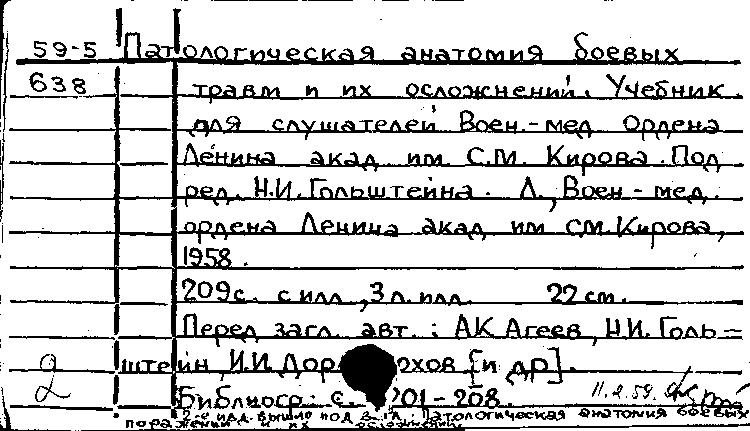 59-5 Патологическая анатомия боевых
638 травм и их осложнений. Учебник
для слушателей Воен.-мед ордена
Ленина акад им С.М. Кирова. Под
ред. Н.И. Гольштейна. Л., Воен-мед.
ордена Ленина акад им С.М. Кирова,
1958.
209 с. с илл., 3 л. илл. 22 см.
Перед загл. авт.: А.К Агеев, Н.И. Голь=
2 штейн, И.И. [и др].
Библиогр: с. 201-208. 11.2.59.
2-е изд. вышло под загл.: Патологическая анатомия боевых
поражений и их осложнений